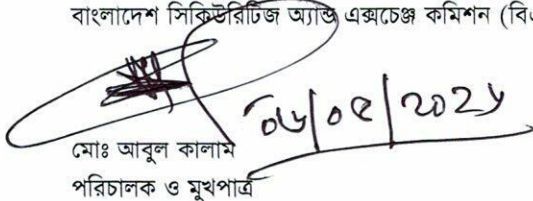 বাংলাদেশ সিকিউরিটিজ অ্যান্ড এক্সচেঞ্জ কমিশন
০৬/০৫/২০২৬
মোঃ আবুল কালাম
পরিচালক ও মুখপাত্র